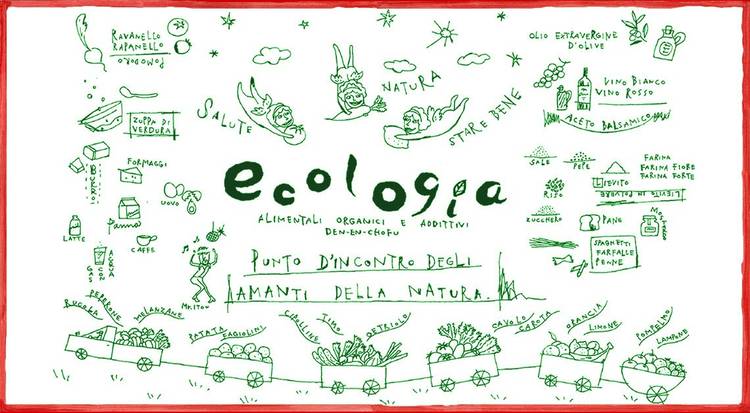 RAVANELLO
RAPANELLO
POMODORO
ZUPPA DI
VERDURA
BURRO
FORMAGGI
UOVO
Panna
LATTE
ACQUA
CON
GAS
CAFFE
MR.ITOU
SALUTE
NATURA
STARE BENE
ecologia
ALIMENTALI ORGANICI E ADDITTIVI
DEN-EN-CHOFU
PUNTO D'INCONTRO DEGLI
AMANTI DELLA NATURA.
OLIO EXTRAVERGINE
D'OLIVE
VINO BIANCO
VINO ROSSO
ACETO BALSAMICO
SALE
PEPE
FARINA
FARINA FIORE
FARINA FORTE
RISO
LIEVITO
LIEVITO IN POLVERE
ZUCCHERO
PANE
SPAGHETTI
FARFALLE
PENNE
RUCOLA
PEPERONE
MELANZANE
PATATA
FAGIOLINI
CIPOLLINE
TIMO
CETRIOLO
CAVOLO
CAROTA
ORANCIA
LIMONE
POMPELMO
LAMPONE